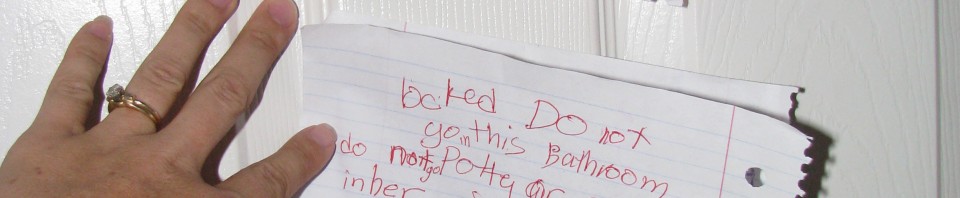 locked DO not
go in this Bathroom
do not go Potty or
in her